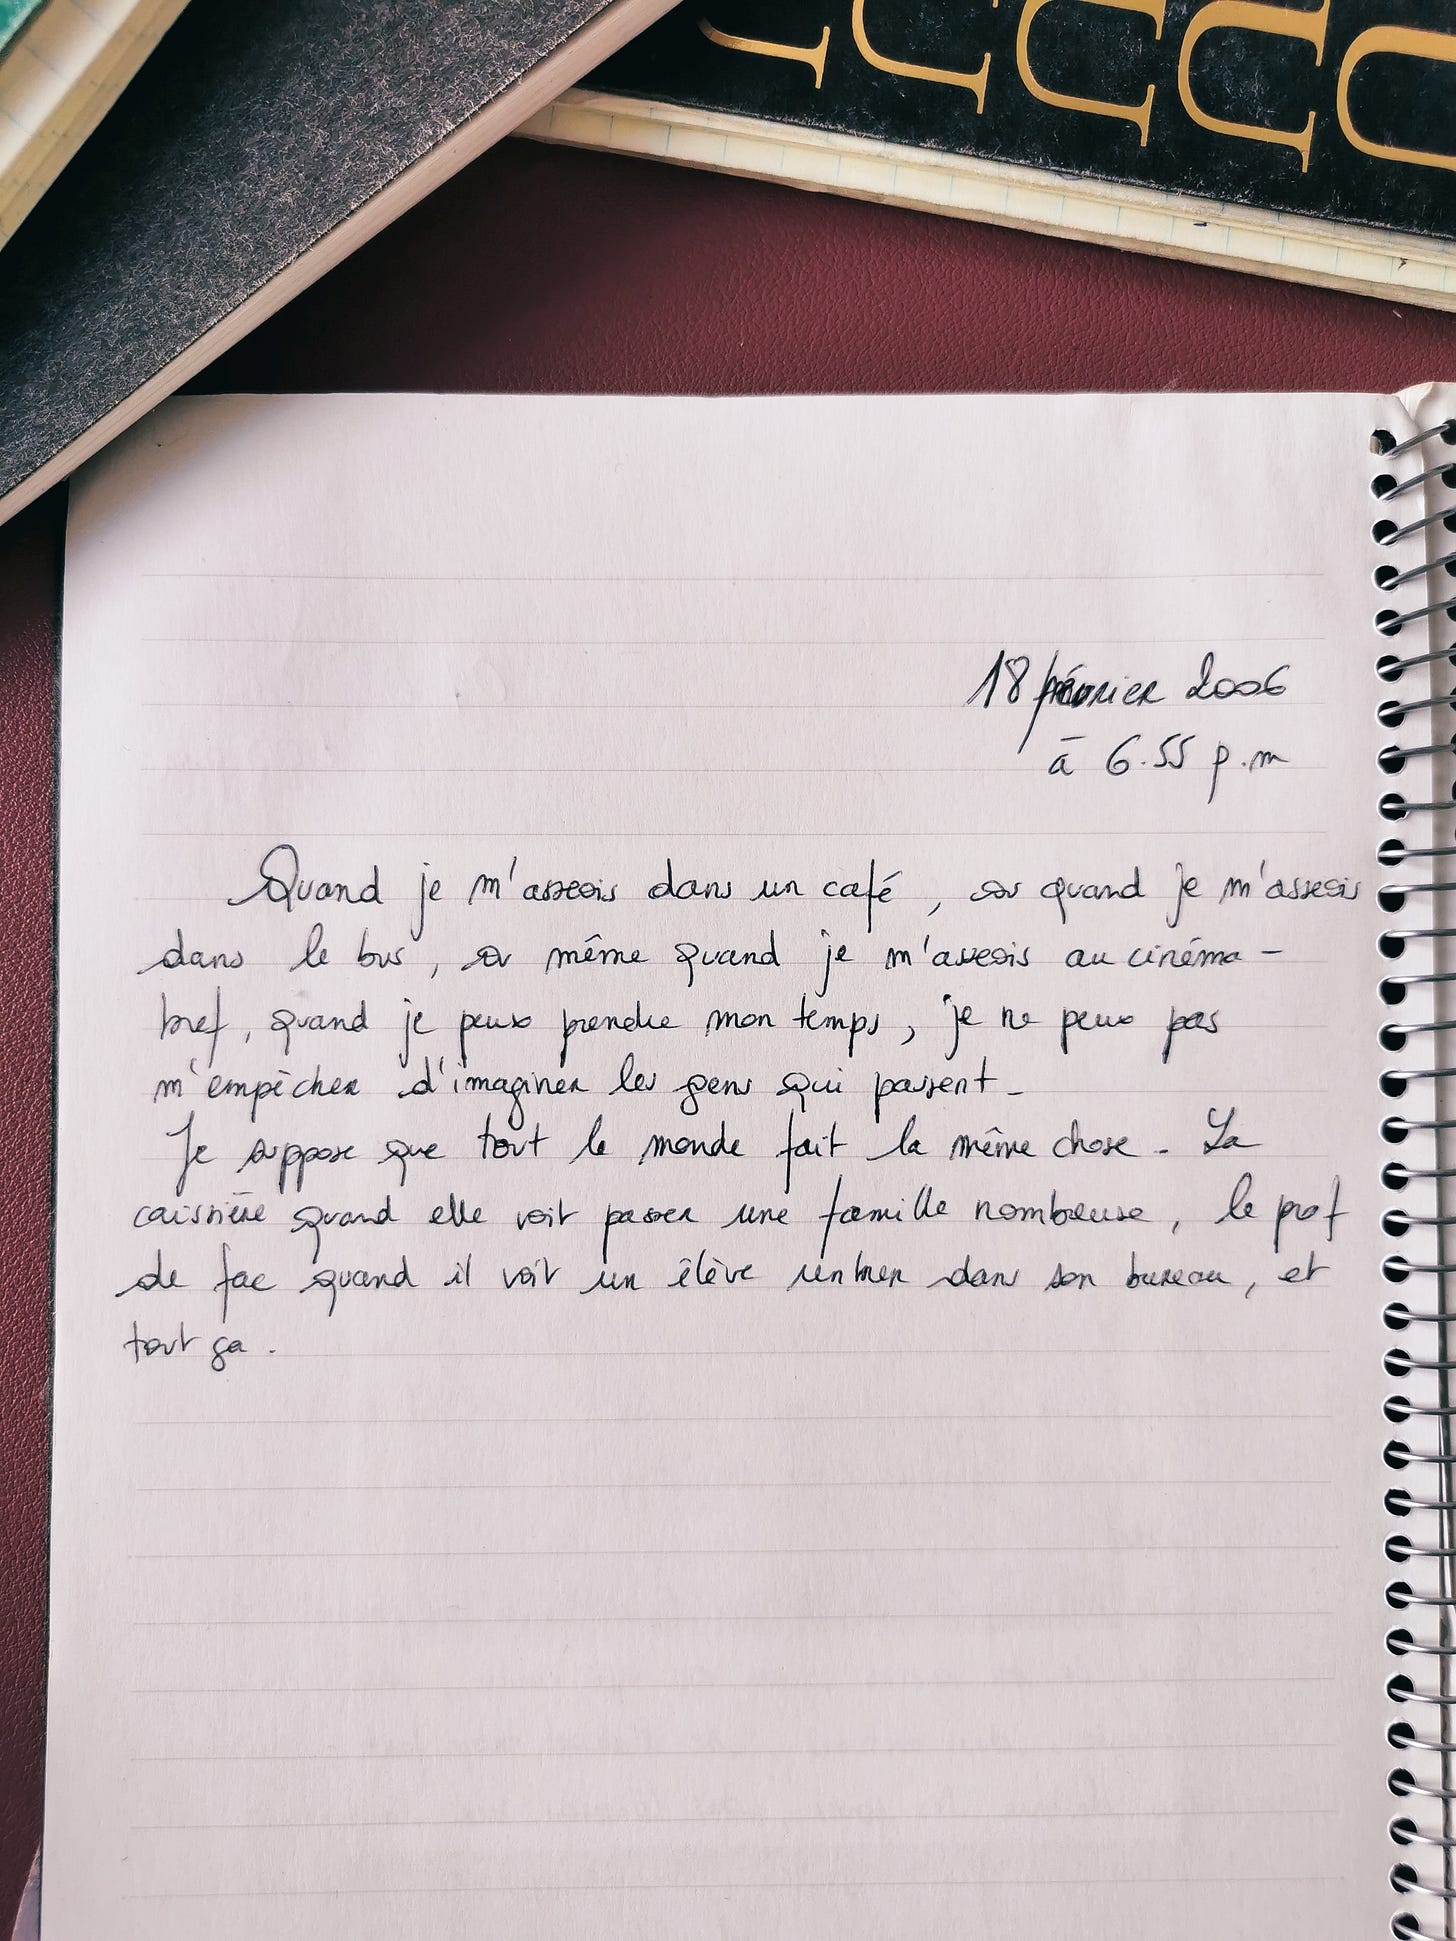 18 février 2006
à 6.55 p.m
Quand je m'asseois dans un café, ou quand je m'asseois
dans le bus, ou même quand je m'asseois au cinéma -
bref, quand je peux prendre mon temps, je ne peux pas
m'empêcher d'imaginer les gens qui passent.
Je suppose que tout le monde fait la même chose. La
caissière quand elle voit passer une famille nombreuse, le prof
de fac quand il voit un élève rentrer dans son bureau, et
tout ça.